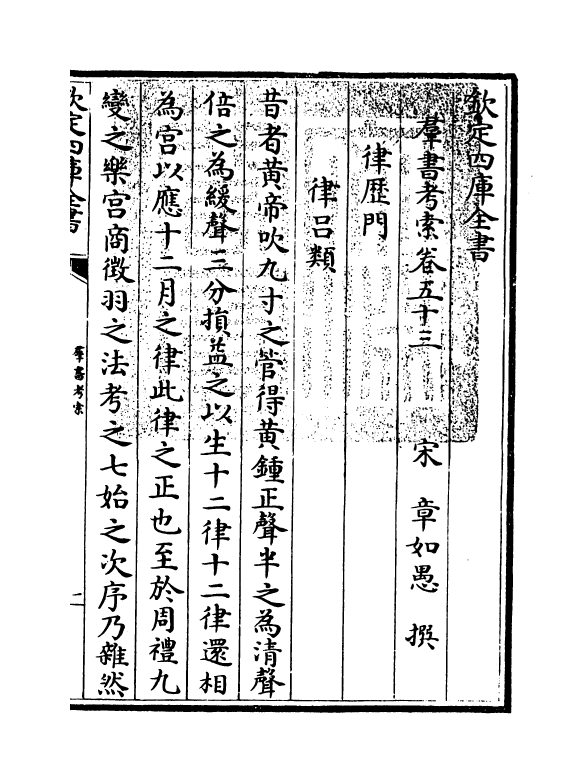 欽定四庫全書
羣書考索卷五十三 宋 章如愚 撰
律歷門
律呂類
昔者黃帝吹九寸之管得黃鍾正聲半之為清聲
倍之為緩聲三分損益之以生十二律十二律還相
為宮以應十二月之律此律之正也至於周禮九
變之樂宮商徵羽之法考之七始之次序乃雜然
欽定四庫全書
羣書考索